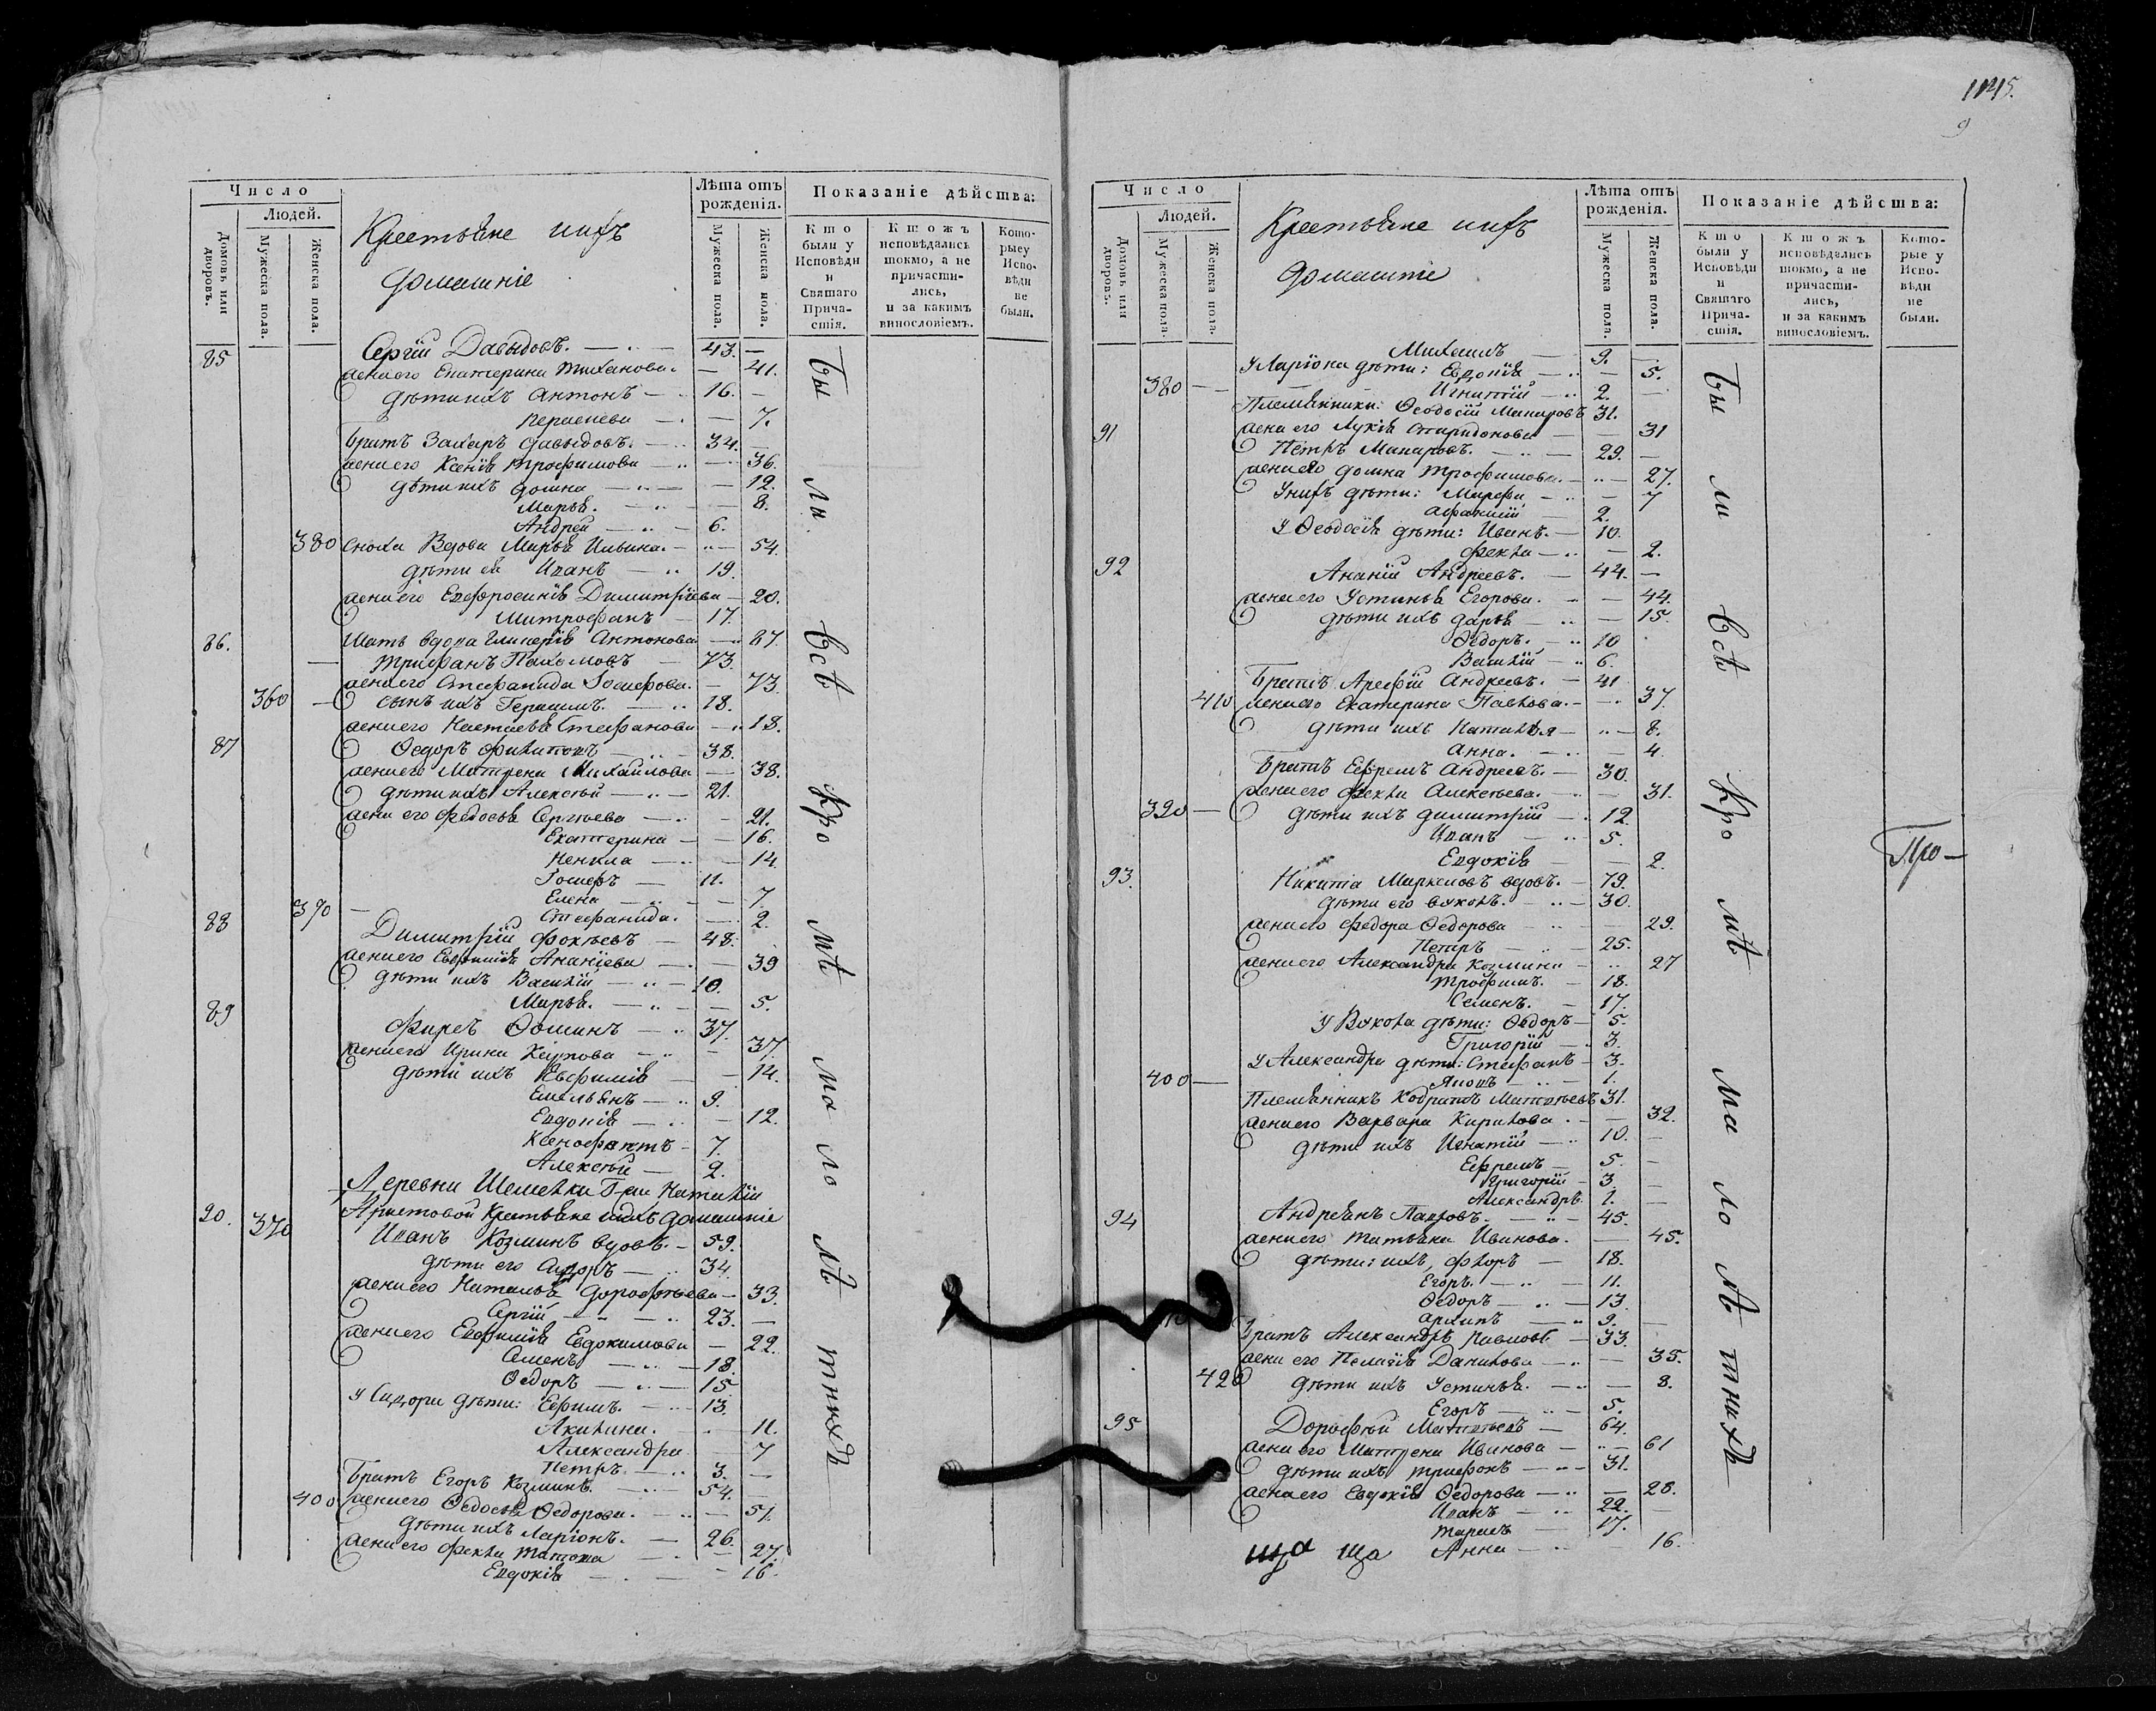 1145.
9
Число
Людей.
Домовъ или дворовъ.
Мужеска пола.
Женска пола.
Крестьяне ихъ
домашніе
Лѣта отъ рожденія.
Мужеска пола.
Женска пола.
Показаніе дѣйства:
Кто были у Исповѣди и Святаго Прича-стія.
Ктожъ исповѣдались токмо, а не причасти-лись, и за какимъ винословіемъ.
Кото-рыеу Испо-вѣди не были.
85 Сергій Давыдовъ. 43.
жена его Екатерина 41.
дѣти ихъ Антонъ 16.
7.
братъ Захаръ Давыдовъ. 34.
жена его Ксенія Трофимова 36.
дѣти ихъ Домна 12.
Марья. 8.
Андрей 6.
380 сноха Вдова Марья Ильина. 54.
дѣти ея Иванъ 19.
жена его Евфросинія Димитріева 20.
Митрофанъ 17.
86. Мать вдова Гликерія Антонова 87.
Трифанъ Пахомовъ 73.
жена его Стефанида Іосифова. 73.
360 сынъ ихъ Герасимъ. 18.
жена его Настасья Стефанова 18.
87 Ѳедоръ Филиповъ 38.
жена его Матрена Михайлова 38.
дѣти ихъ Алексѣй 21.
жена его Федосья Сергѣева 21.
Екатерина 16.
14.
Іосифъ 11.
Елена 7.
390 Стефанида. 2.
88 Димитрій Фокѣевъ 48.
жена его Евфимія Ананіева 39
дѣти ихъ Василій 10.
Марья. 5.
89 Фирсъ Ѳоминъ 37.
жена его Ирина Карпова 37.
дѣти ихъ Евфимія 14.
Емельянъ 9.
Евдокія 12.
Ксенофонтъ 7.
Алексѣй 2.
Деревни Г-жи Наталіи
Аристовой Крестьяне ихъ домашніе
90. 370 Иванъ Козминъ вдовъ. 59.
дѣти его Сидоръ 34.
жена его Наталья Дорофѣева 33.
Сергій 23.
жена его Евфимія Евдокимова 22.
Семенъ 18.
Ѳедоръ 15.
У Сидора дѣти: Ефимъ. 13.
Акилина. 11.
Александра 7
Петръ. 3.
Братъ Егоръ Козминъ. 54.
400 жена его Ѳедосья Ѳедорова. 51.
дѣти ихъ Ларіонъ. 26.
жена его Фекла 27.
Евдокія 16.
Бы ли всѣ кро мѣ ма ло лѣ тнихъ
Число
Людей.
Домовъ или дворовъ.
Мужеска пола.
Женска пола.
Крестьяне ихъ
домашніе
Лѣта отъ рожденія.
Мужеска пола.
Женска пола.
Показаніе дѣйсшва:
Кто были у Исповѣди и Святаго Прича-стія.
Ктожъ исповѣдались токмо, а не причасти-лись, и за какимъ винословіемъ.
Кото-рые у Испо-вѣди не были.
Михаилъ 9.
У Ларіона дѣти: Евдокія 5.
380 Игнатій 2.
Племянники: Ѳеодосій Макаровъ 31.
91 жена его Лукія Спиридонова 31
Петръ Макаровъ. 29.
жена его Домна Трофимова. 27.
У нихъ дѣти: Марфа 7
Афанасій 2.
У Ѳеодосія дѣти: Иванъ. 10.
Фекла 2.
92 Ананій Андреевъ. 44.
жена его Устинья Егорова. 44.
дѣти ихъ Дарья 15.
Ѳедоръ. 10
Василій 6.
Братъ Арефій Андреевъ. 41
410 жена его Екатерина Павлова. 37.
дѣти ихъ Наталья 8.
Анна. 4.
Братъ Ефремъ Андреевъ. 30.
жена его Фекла Алексѣева. 31.
390 дѣти ихъ Димитрій 12.
Иванъ 5.
Евдокія 2.
93. Никита Маркеловъ вдовъ. 79.
дѣти его Вуколъ. 30.
жена его Федора Ѳедорова 29.
Петръ 25.
жена его Александра Козмина 27
Трофимъ. 18.
Семенъ. 17.
У Вукола дѣти: Ѳедоръ 5.
Григорій 3.
У Александра дѣти: Стефанъ 3.
400 1.
Племянникъ Кодратъ Матвѣевъ 31.
жена его Варвара Кирилова. 32.
дѣти ихъ Игнатій 10.
Ефремъ 5.
Григорій 3.
Александръ. 1.
94 Андреянъ Павловъ. 45.
жена его Татьяна Иванова. 45.
дѣти: ихъ, Флоръ 18.
Егоръ. 11.
Ѳедоръ 13.
Архипъ 9.
Братъ Александръ Павловъ 33.
жена его Пелагія Данилова 35.
420 дѣти ихъ Устинья. 8.
Егоръ 5.
95 Дорофей Матвѣевъ 64.
жена его Матрена Иванова 61
дѣти ихъ Трифонъ 31.
жена его Евдокія Ѳедорова 28.
Иванъ 22.
Тарасъ 17.
Анна 16.
ща ща
Бы ли всѣ кро мѣ ма ло лѣ тнихъ
Про—